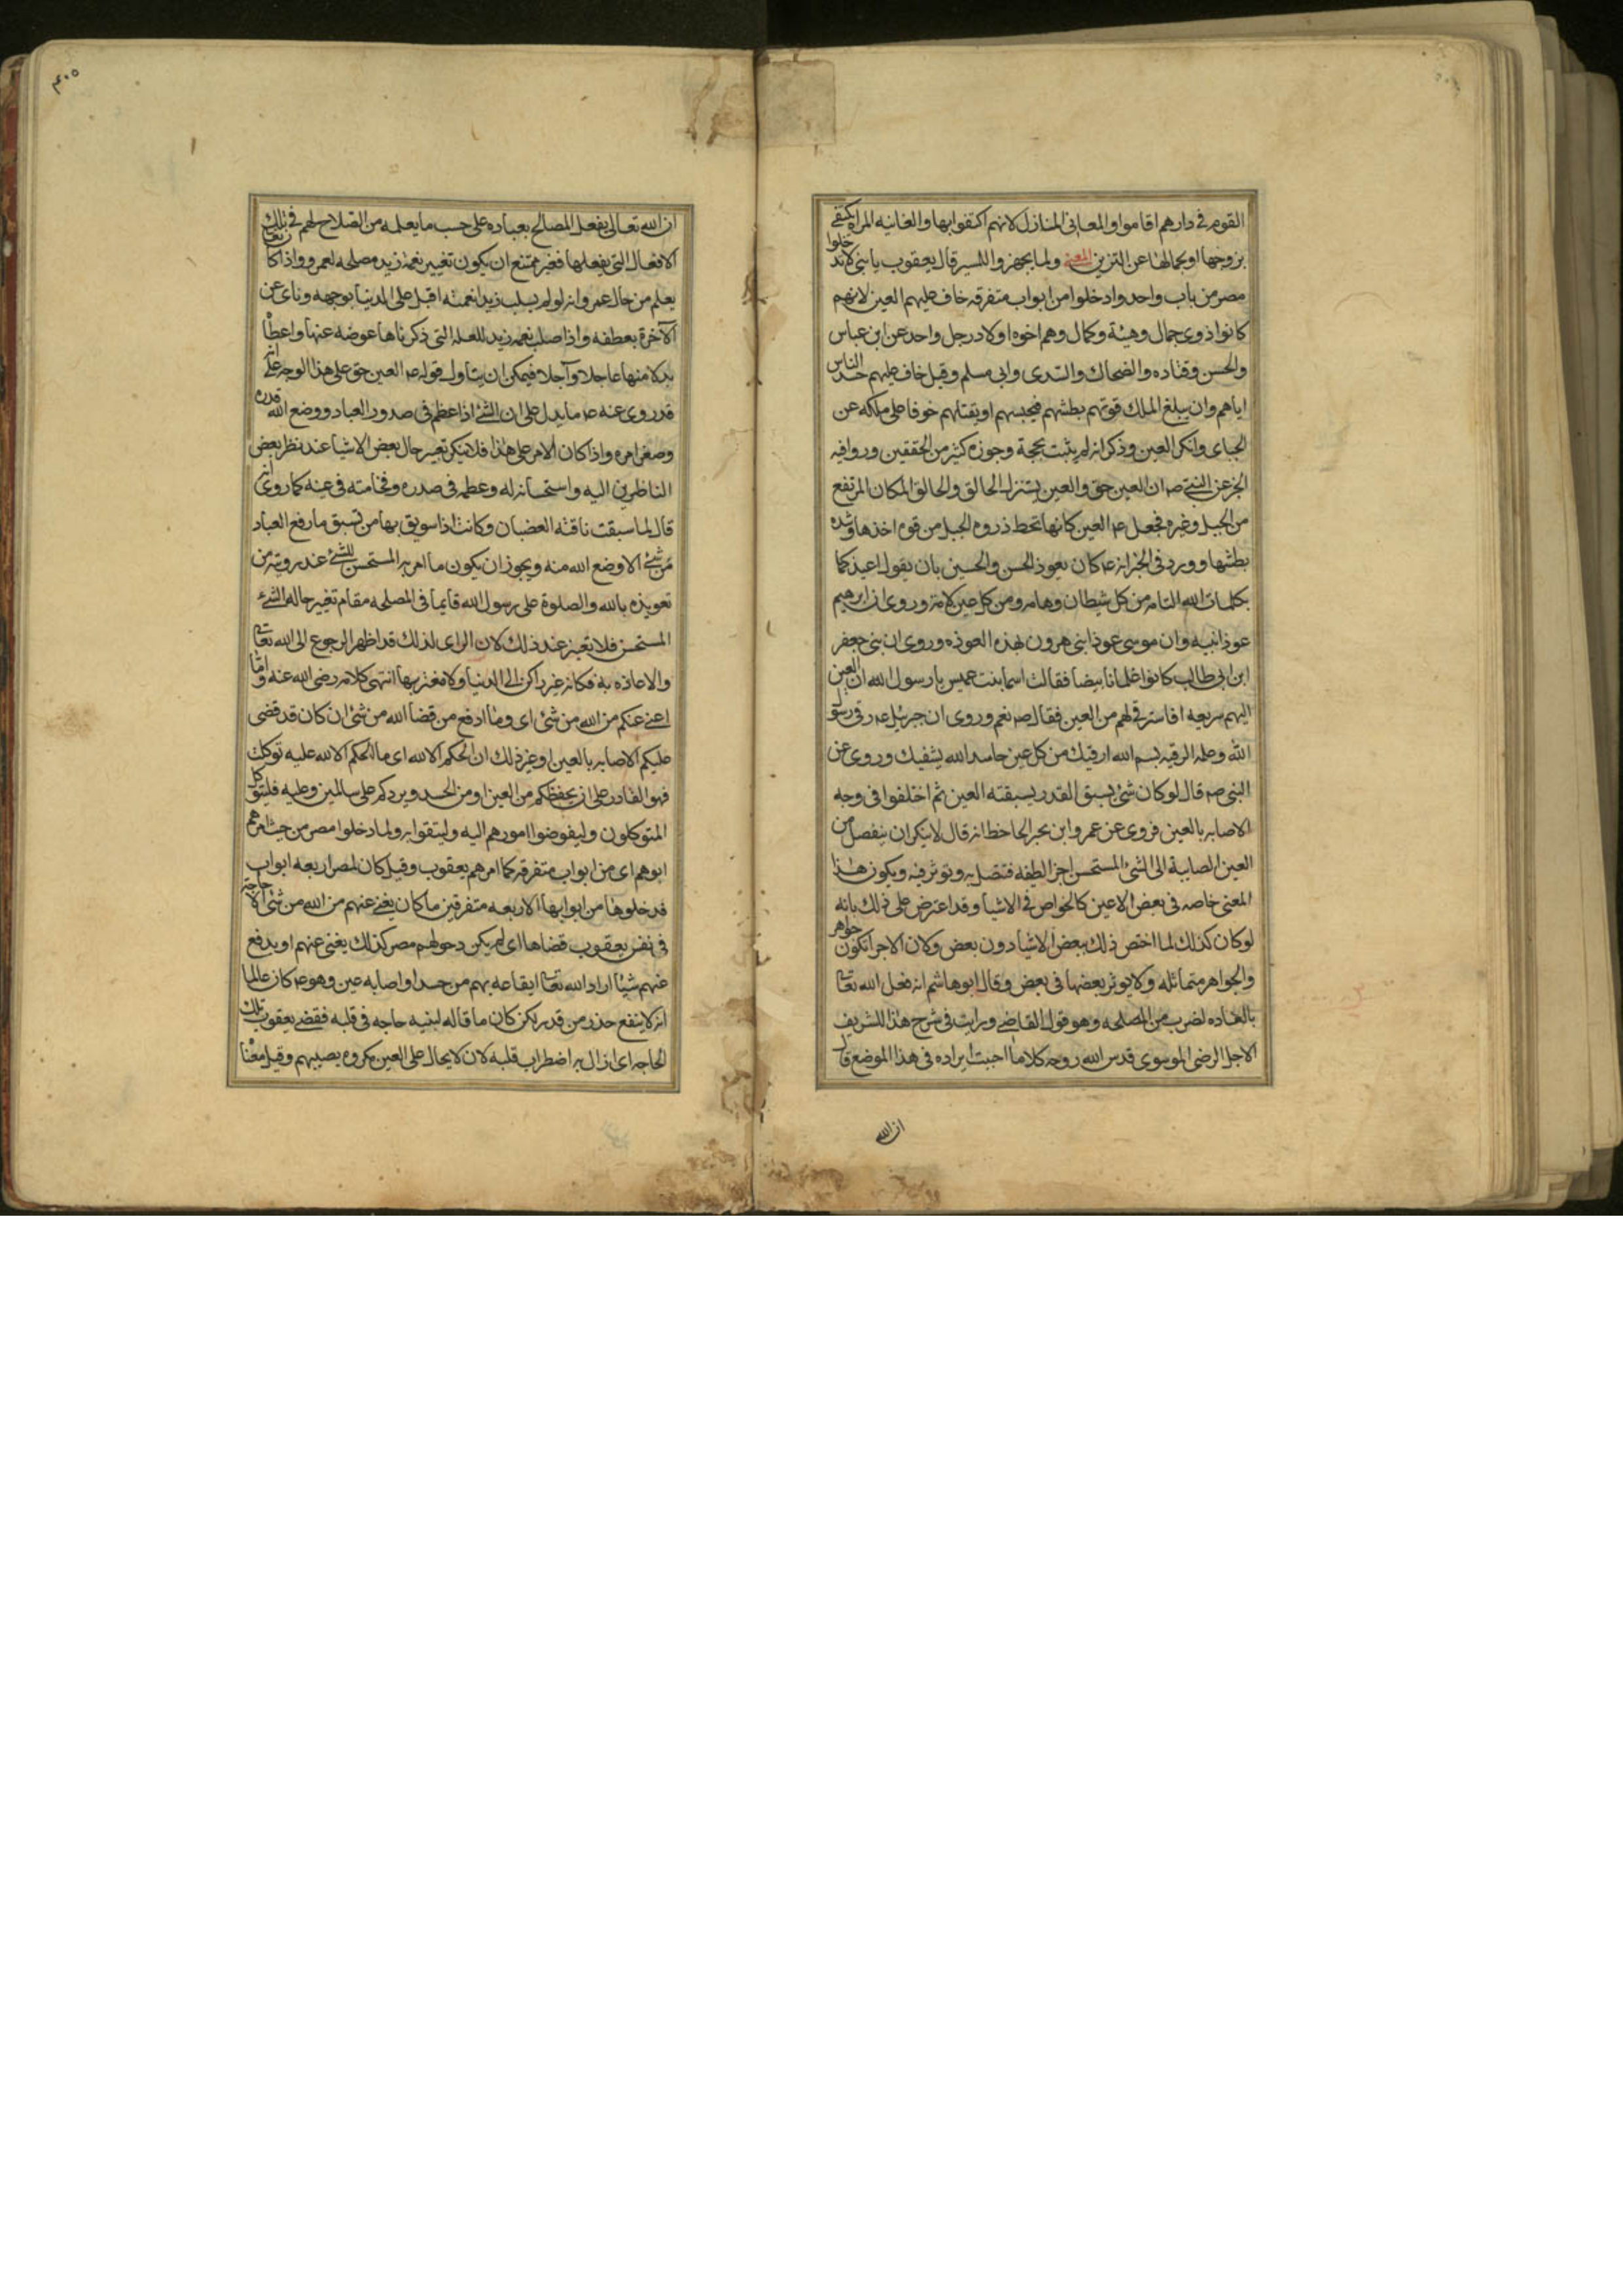 القوم في دارهم اقاموا والمعاني المنازل لانهم اكتفوا بها والغانيه المراه تكتفي
بزوجها او بجمالها عن التزين المعنى ولما تجهزوا للمسير قال يعقوب يا بني لا تدخلوا
مصر من باب واحد وادخلوا من ابواب متفرقه خاف عليهم العين لانهم
كانوا ذوي جمال وهيئة وكمال وهم اخوه اولاد رجل واحد عن ابن عباس
والحسن وقتاده والضحاك والسدي وابي مسلم وقيل خاف عليهم حسد الناس
اياهم وان يبلغ الملك قوتهم بطشهم فيحبسهم او يقتلهم خوفا على ملكه عن
الجباي وانكر العين وذكر انه لم يثبت بحجة وجوزه كثير من المحققين ورووا فيه
الخبر عن النبي ص ان العين حق والعين يستنزل الحالق والحالق المكان المرتفع
من الجبل وغيره فجعل ع العين كانها تحط ذروه الجبل من قوه اخذها وشده
بطشها وورد في الخبر انه ع كان يعوذ الحسن والحسين بان يقول اعيذكما
بكلمات الله التامه من كل شيطان وهامه ومن كل عين لامه وروى ان ابرهيم
عوذ ابنيه وان موسى عوذ ابني هرون بهذه العوذه وروى ان بني جعفر
ابن ابي طالب كانوا غلمانا بيضا فقالت اسما بنت عميس يا رسول الله ان العين
اليهم سريعه افاسترقي لهم من العين فقال ص نعم وروى ان جبرئيل ع رقى رسول
الله وعلمه الرقيه بسم الله ارقيك من كل عين حاسد الله يشفيك وروى عن
النبي ص قال لو كان شئ يسبق القدر لسبقته العين ثم اختلفوا في وجه
الاصابه بالعين فروى عن عمرو ابن بحر الجاحظ انه قال لا ينكر ان ينفصل من
العين الصايبة الى الشئ المستحسن اجزا لطيفه فتتصل به وتوثر فيه ويكون هذا
المعنى خاصه في بعض الاعين كالخواص في الاشيا وقد اعترض على ذلك بانه
لو كان كذلك لما اختص ذلك ببعض الاشيا دون بعض ولان الاجزا تكون جواهر
والجواهر متماثله ولا يوثر بعضها في بعض وقال ابو هاشم انه فعل الله تعالى
بالعاده لضرب من المصلحه وهو قول القاضي ورايت في شرح هذا للشريف
الاجل الرضي الموسوي قدس الله روحه كلاما احببت ايراده في هذا الموضع قال
ان الله
٤٠٥
ان الله تعالى يفعل المصالح بعباده على حسب ما يعلمه من الصلاح لهم في تلك
الافعال التي يفعلها فغير ممتنع ان يكون تغيير نعمة زيد مصلحه لعمرو واذا كان تعالى
يعلم من حال عمرو انه لو لم يسلب زيدا نعمته اقبل على الدنيا بوجهه وناى عن
الآخرة بعطفه واذا سلب نعمه زيد للعلة التي ذكرناها عوضه عنها واعطاه
بدلا منها عاجلا وآجلا فيمكن ان يتاول قوله ع العين حق على هذا الوجه على انه
قد روى عنه ع ما يدل على ان الشئ اذا عظم في صدور العباد ووضع الله قدره
وصغر امره واذا كان الامر على هذا فلا ينكر تغير حال بعض الاشيا عند نظر بعض
الناظرين اليه واستحسانه له وعظمه في صدره وفخامته في عينه كما روى انه
قال لما سبقت ناقته العضبان وكانت اذا سوبق بها من تسبق ما رفع العباد
من شئ الا وضع الله منه ويجوز ان يكون ما امر به المستحسن للشئ عند رويته من
تعويذه بالله والصلوة على رسول الله قايما في المصلحه مقام تغيير حاله الشئ
المستحسن فلا تغيير عند ذلك لان الراى لذلك قد اظهر الرجوع الى الله تعالى
والاعاذه به فكانه غير راكن الى الدنيا ولا مغتر بها انتهى كلامه رضى الله عنه وما
اغني عنكم من الله من شئ اى وما ادفع من قضا الله من شئ ان كان قد قضى
عليكم الاصابه بالعين او غير ذلك ان الحكم الا لله اى ما الحكم الا لله عليه توكلت
فهو القادر على ان يحفظكم من العين او من الحسد ويردكم على سالمين وعليه فليتوكل
المتوكلون وليفوضوا امورهم اليه وليثقوا به ولما دخلوا مصر من حيث امرهم
ابوهم اى من ابواب متفرقه كما امرهم يعقوب وقيل كان لمصر اربعه ابواب
فدخلوها من ابوابها الاربعه متفرقين ما كان يغني عنهم من الله من شئ الا حاجة
في نفس يعقوب قضاها اى لم يكن دخولهم مصر كذلك يغني عنهم او يدفع
عنهم شيئا اراد الله تعالى ايقاعه بهم من حسد او اصابه عين وهو ع كان عالما
انه لا ينفع حذر من قدر لكن كان ما قاله لبنيه حاجه في قلبه فقضى يعقوب تلك
الحاجه اى ازال به اضطراب قلبه لان لا يحال على العين مكروه يصيبهم وقيل معنا